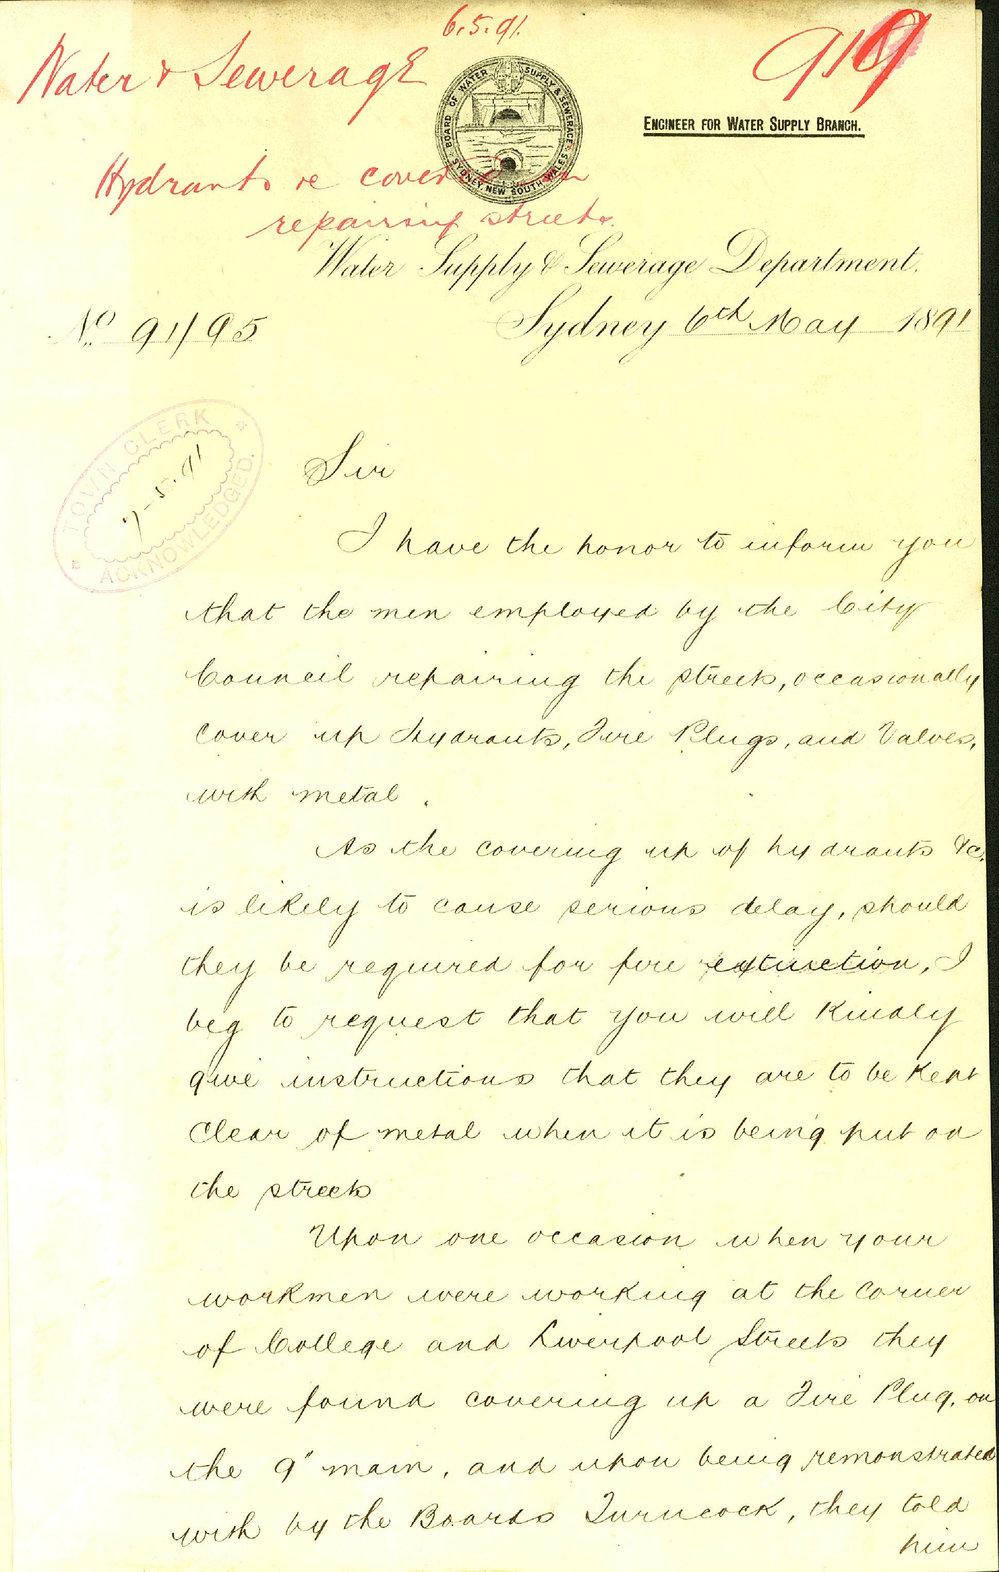 6.5.91.
Water & Sewerage
919
BOARD OF WATER SUPPLY & SEWERAGE
SYDNEY, NEW SOUTH WALES
ENGINEER FOR WATER SUPPLY BRANCH.
Hydrants re cover
repairing streets.
Water Supply & Sewerage Department.
No. 91/95
Sydney 6th May 1891
TOWN CLERK
7-5-91
ACKNOWLEDGED.
Sir
I have the honor to inform you
that the men employed by the City
Council repairing the streets, occasionally
cover up hydrants, Fire Plugs, and Valves,
with metal.
As the covering up of hydrants &c.
is likely to cause serious delay, should
they be required for fire extinction, I
beg to request that you will kindly
give instructions that they are to be kept
clear of metal when it is being put on
the streets
Upon one occasion when your
workmen were working at the corner
of College and Liverpool Streets they
were found covering up a Fire Plug, on
the 9" main, and upon being remonstrated
with by the Boards Turncock, they told
him